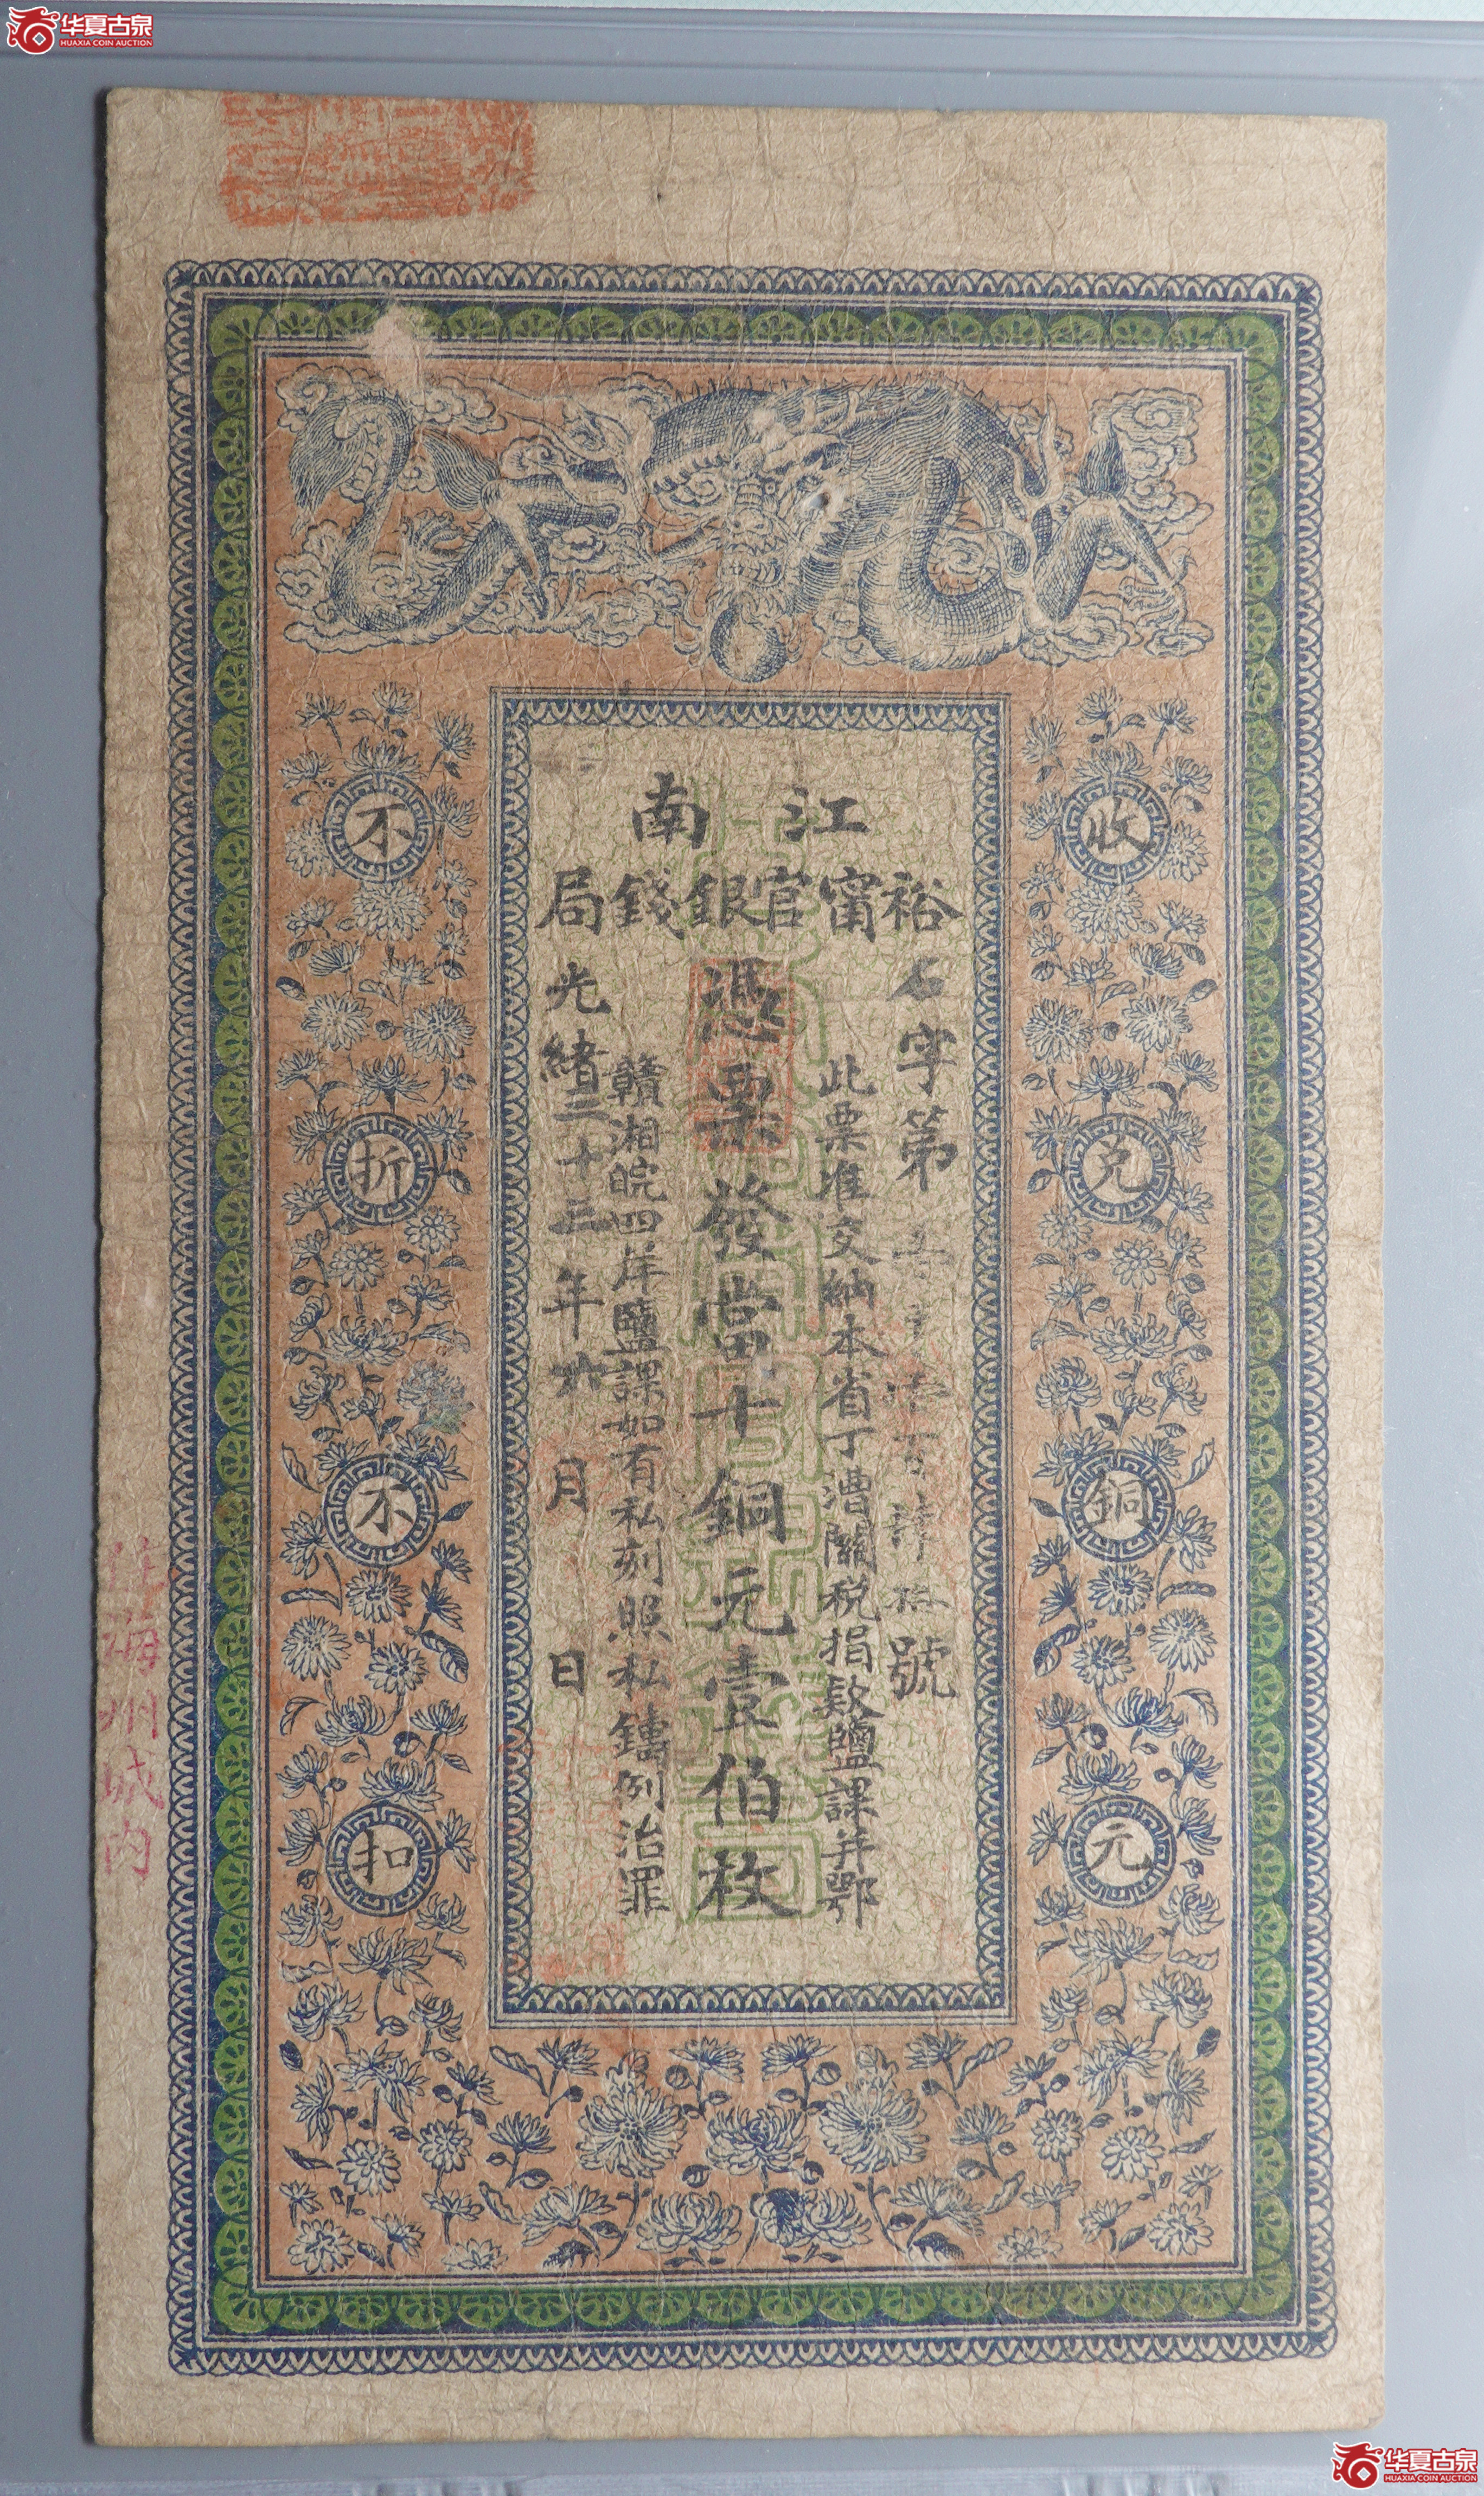 华夏古泉
HUAXIA COIN AUCTION
江南
裕甯官銀錢局
石字第
號
此票准交納本省丁漕關税捐欵鹽課并鄂
憑票發當十銅元壹伯枚
贛湘皖四岸鹽課如有私刻照私鑄例治罪
光緒三十三年
月
日
收兌銅元
不折不扣
海州城内
华夏古泉
HUAXIA COIN AUCTION